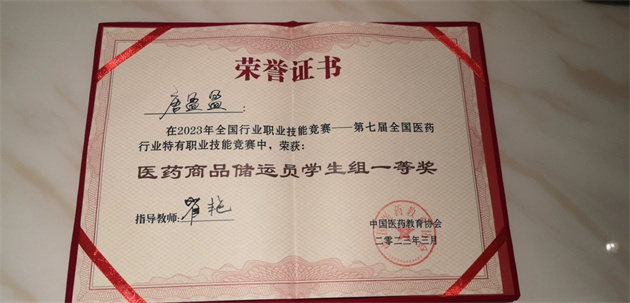 荣誉证书
唐盈盈:
在2023年全国行业职业技能竞赛——第七届全国医药
行业特有职业技能竞赛中，荣获:
医药商品储运员学生组一等奖
指导教师:
中国医药教育协会
二〇二三年三月